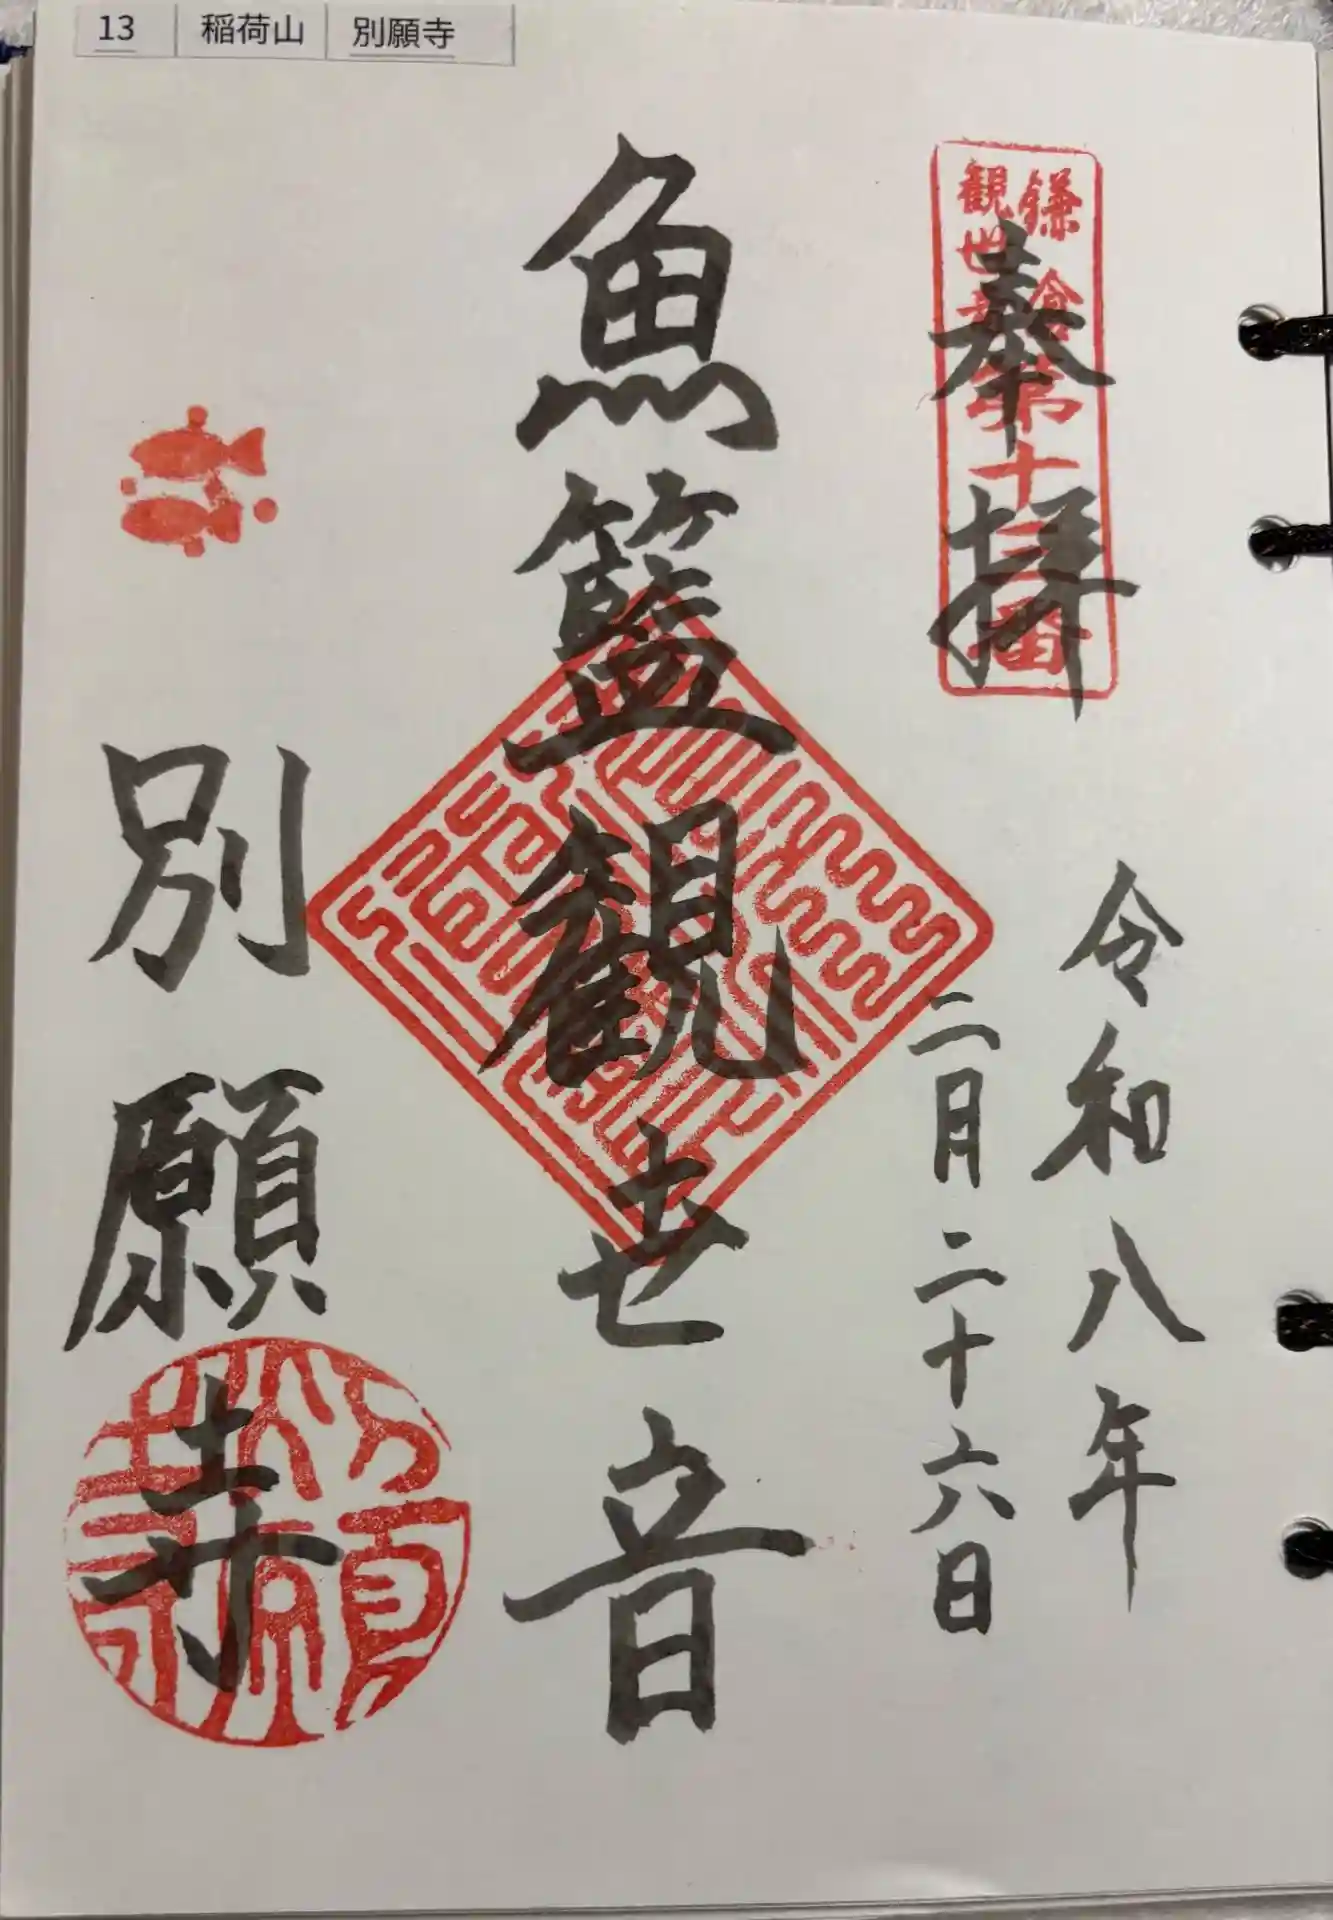 13 稲荷山 別願寺
鎌倉
観世音
第十三番
奉拝
令和八年
二月二十六日
魚籃観世音
別願寺